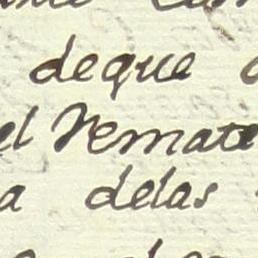 deque
el Remate
a delas